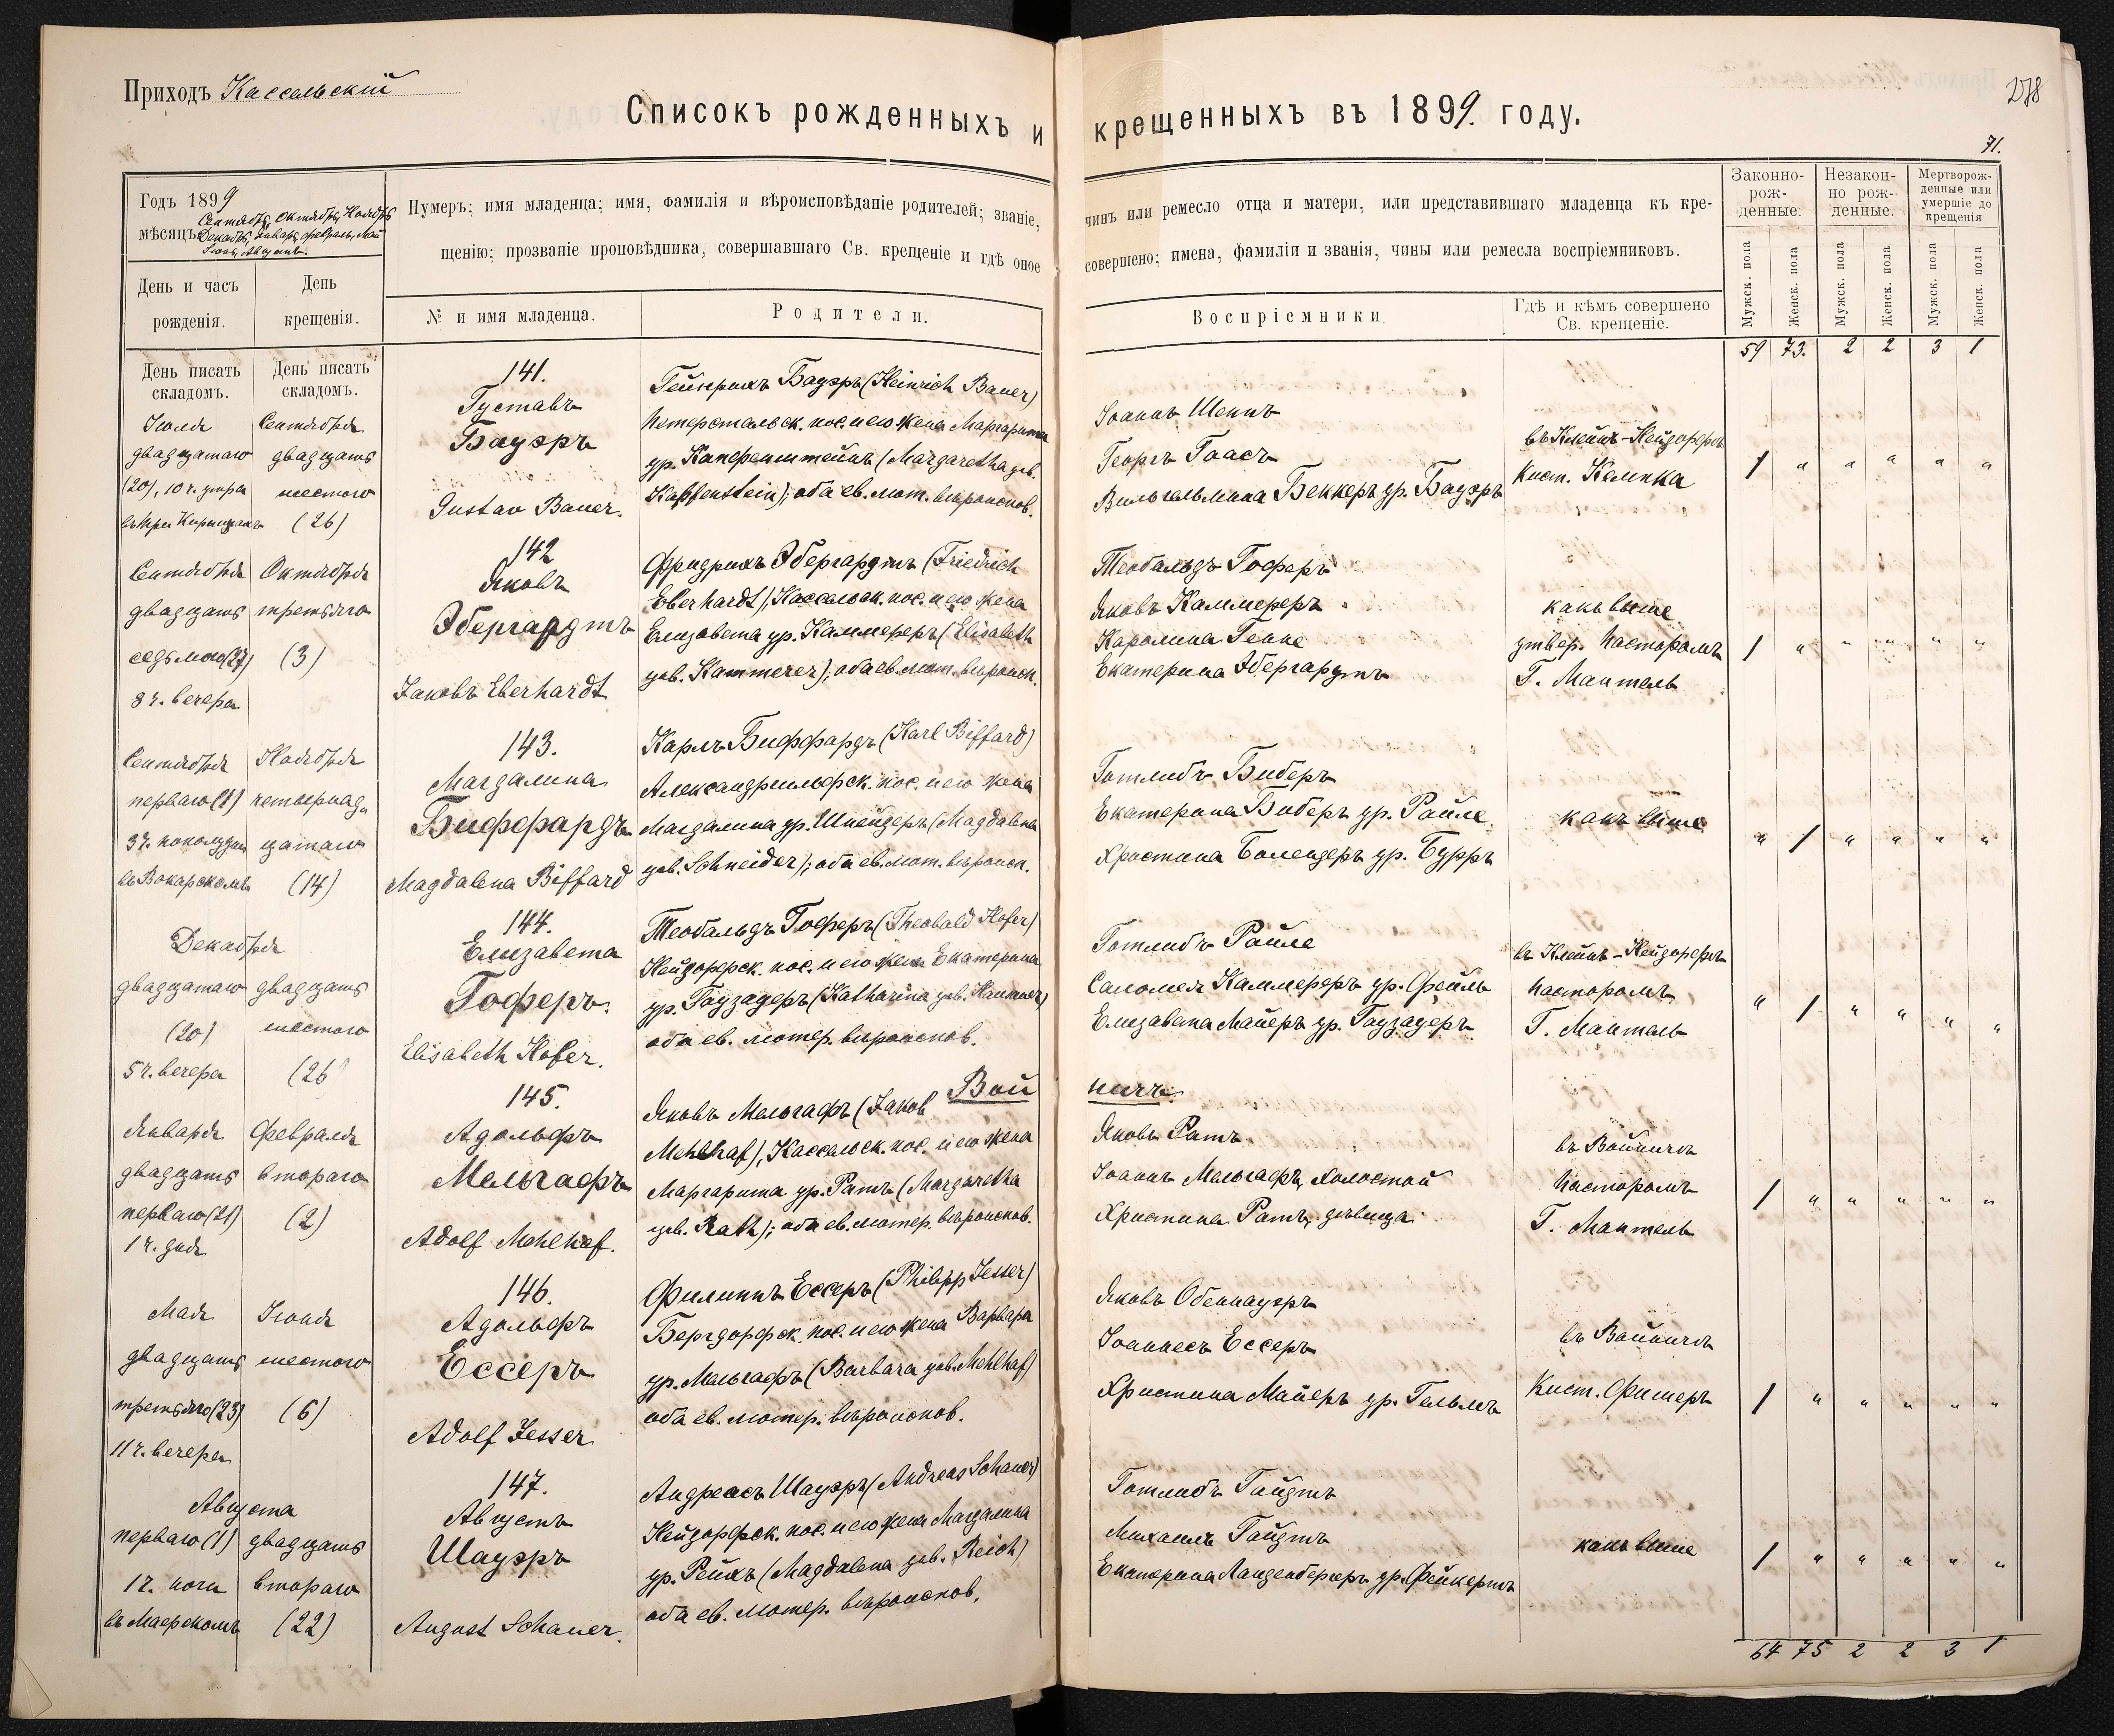 Приходъ Кассельскій
Списокъ рожденныхъ и крещенныхъ въ 1899. году.
278
71.
Годъ 1899
мѣсяцъ Сентябрь, Октябрь, Ноябрь
Декабрь, Январь, Февраль, Май
Іюнь, Августъ.
Нумеръ; имя младенца; имя, фамилія и вѣроисповѣданіе родителей; званіе, чинъ или ремесло отца и матери, или представившаго младенца къ кре-
щенію; прозваніе проповѣдника, совершавшаго Св. крещеніе и гдѣ оное совершено; имена, фамиліи и званія, чины или ремесла воспріемниковъ.
День и часъ
рожденія.
День
крещенія.
№ и имя младенца.
Родители.
Воспріемники.
Гдѣ и кѣмъ совершено
Св. крещеніе.
Законно-
рож-
денные.
Незакон-
но рож-
денные.
Мертворож-
денные или
умершіе до
крещенія
Мужск. пола
Женск. пола
Мужск. пола
Женск. пола
Мужск. пола
Женск. пола
59 73. 2 2 3 1
День писать
складомъ.
День писать
складомъ.
Іюля
двадцатаго
(20), 10 ч. утра
Сентября
двадцать
шестого
(26)
141.
Густавъ
Бауэръ
Gustav Bauer.
Гейнрихъ Бауэръ (Heinrich Bauer)
Петерстальск. пос. и его жена Маргарита
ур. Капфенштейнъ (Margaretha geb.
Kapfenstein); оба ев. лют. вѣроиспов.
Іоаннъ Шеннъ
Георгъ Гаасъ
Вильгельмина Беккеръ ур. Бауэръ
въ Клейнъ-Нейдорфѣ
Кист. Келпка
1 " " " " "
Сентября
двадцать
седьмого (27)
8 ч. вечера
Октября
третьяго
(3)
142
Яковъ
Эбергардтъ
Jakob Eberhardt
Фридрихъ Эбергардтъ (Friedrich
Eberhardt), Кассельск. пос. и его жена
Елизавета ур. Каммереръ (Elisabeth
geb. Kammerer); оба ев. лют. вѣроисп.
Теобальдъ Гоферъ
Яковъ Каммереръ
Каролина Генне
Екатерина Эбергардтъ
какъ выше
утвер. Пасторомъ
Г. Мантель
1 " " " " "
Сентября
перваго (1)
3 ч. пополудни
въ Бокарскомъ
Ноября
четырнад-
цатаго
(14)
143.
Магдалина
Биффардъ
Magdalena Biffard
Карлъ Биффардъ (Karl Biffard)
Александргильфск. пос. и его жена
Магдалина ур. Шнейдеръ (Magdalena
geb. Schneider); оба ев. лют. вѣроисп.
Готлибъ Биберъ
Екатерина Биберъ ур. Райле
Христина Болендеръ ур. Бурръ
какъ выше
" 1 " " " "
Декабря
двадцатаго
(20)
5 ч. вечера
двадцать
шестого
(26)
144.
Елизавета
Гоферъ.
Elisabeth Hofer.
Теобальдъ Гоферъ (Theobald Hofer)
Нейдорфск. пос. и его жена Екатерина
ур. Гаузадеръ (Katharina geb.
оба ев. лютер. вѣроиспов.
Готлибъ Райле
Саломея Каммереръ ур. Фейль
Елизавета Майеръ ур. Гаузадеръ
въ Клейнъ-Нейдорфѣ
Пасторомъ
Г. Мантель
" 1 " " " "
Войничъ.
Января
двадцать
перваго (21)
1 ч. дня
Февраля
второго
(2)
145.
Адольфъ
Мельгафъ
Adolf Mehlhaf.
Яковъ Мельгафъ (Jakob
Mehlhaf), Кассельск. пос. и его жена
Маргарита ур. Ратъ (Margaretha
geb. Rath); оба ев. лютер. вѣроиспов.
Яковъ Ратъ
Іоаннъ Мельгафъ, холостой
Христина Ратъ, дѣвица
въ Войничѣ
Пасторомъ
Г. Мантель
1 " " " " "
Мая
двадцать
третьяго (23)
11 ч. вечера
Іюня
шестого
(6)
146.
Адольфъ
Ессеръ
Adolf Jesser
Филиппъ Ессеръ (Philipp Jesser)
Бергдорфск. пос. и его жена Варвара
ур. Мельгафъ (Barbara geb. Mehlhaf)
оба ев. лютер. вѣроиспов.
Яковъ Обенауэръ
Іоаннесъ Ессеръ
Христина Майеръ ур. Гельмъ
въ Войничѣ
Кист. Фишеръ
1 " " " " "
Августа
перваго (1)
1 ч. ночи
въ Маерскомъ
двадцать
второго
(22)
147.
Августъ
Шауэръ
August Schauer.
Андреасъ Шауэръ (Andreas Schauer)
Нейдорфск. пос. и его жена Магдалина
ур. Рейхъ (Magdalena geb. Reich)
оба ев. лютер. вѣроиспов.
Готлибъ Гайдтъ
Михаилъ Гайдтъ
Екатерина Ланденбергеръ ур. Фейкертъ
какъ выше
1 " " " " "
64 75 2 2 3 1